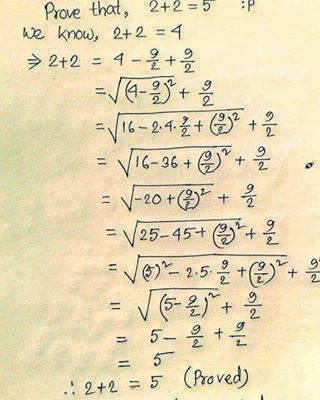 Prove that, 2+2=5 :P
We know, 2+2 = 4
⇒ 2+2 = 4 - 9/2 + 9/2
= √(4 - 9/2)² + 9/2
= √16 - 2.4.9/2 + (9/2)² + 9/2
= √16 - 36 + (9/2)² + 9/2
= √-20 + (9/2)² + 9/2
= √25 - 45 + (9/2)² + 9/2
= √(5)² - 2.5.9/2 + (9/2)² + 9/2
= √(5 - 9/2)² + 9/2
= 5 - 9/2 + 9/2
= 5
∴ 2+2 = 5 (Proved)